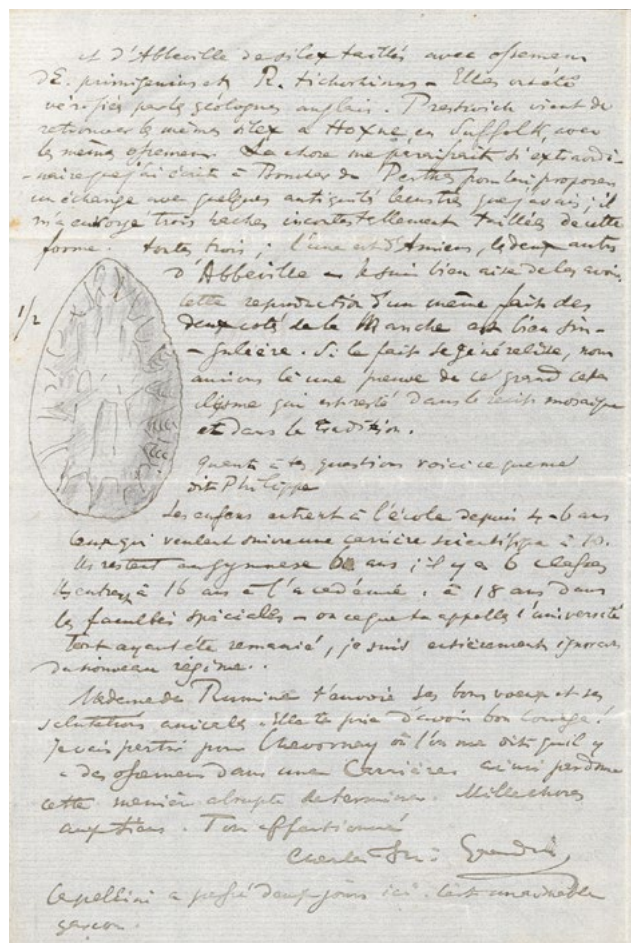 et d'Abbeville de silex taillés avec ossemens
d'E. primigenius et R. tichorhinus – Elles ont été
vérifiées par les géologues anglais. Prestwich vient de
retrouver les mêmes silex a Hoxne, en Suffolk, avec
les mêmes ossemens. La chose me paraissait si extraordi-
-naire que j'ai écrit à Boucher de Perthes pour lui proposer
un échange avec quelques antiquités lacustres que j'avais; il
m'a envoyé trois haches incontestablement taillées de cette
forme. toutes trois; l'une est d'Amiens, les deux autres
d'Abbeville – Je suis bien aise de les avoir
cette reproduction d'un même fait des
deux coté de la Manche est bien sin-
-gulière. Si le fait se généralise, nous
1/2
aurions là une preuve de ce grand cata
clisme qui est resté dans le récit mosaique
et dans la tradition.
Quant à tes questions voici ce que me
dit Philippe
Les enfans entrent à l'école depuis 4-6 ans
ceux qui veulent suivre une carrière scientifique à 10.
Ils restent au gymnase 6 ans; il y a 6 classes
Ils entrent à 16 ans à l'académie. à 18 ans dans
les facultés spéciales – ou ce que tu appelles l'université
tout ayant été remanié, je suis entièrement ignorant
du nouveau régime.
Madame de Rumine t'envoie ses bons voeux et ses
salutations amicales. Elle te prie d'avoir bon courage!
Je vais partir pour Chavornay où l'on me dit qu'il y
a des ossemens dans une Carrière ainsi pardonne
cette manière abrupte de terminer. Mille choses
aux tiens. Ton affectionné
Charles
Capellini a passé deux jours ici. C'est un aimable
garçon.